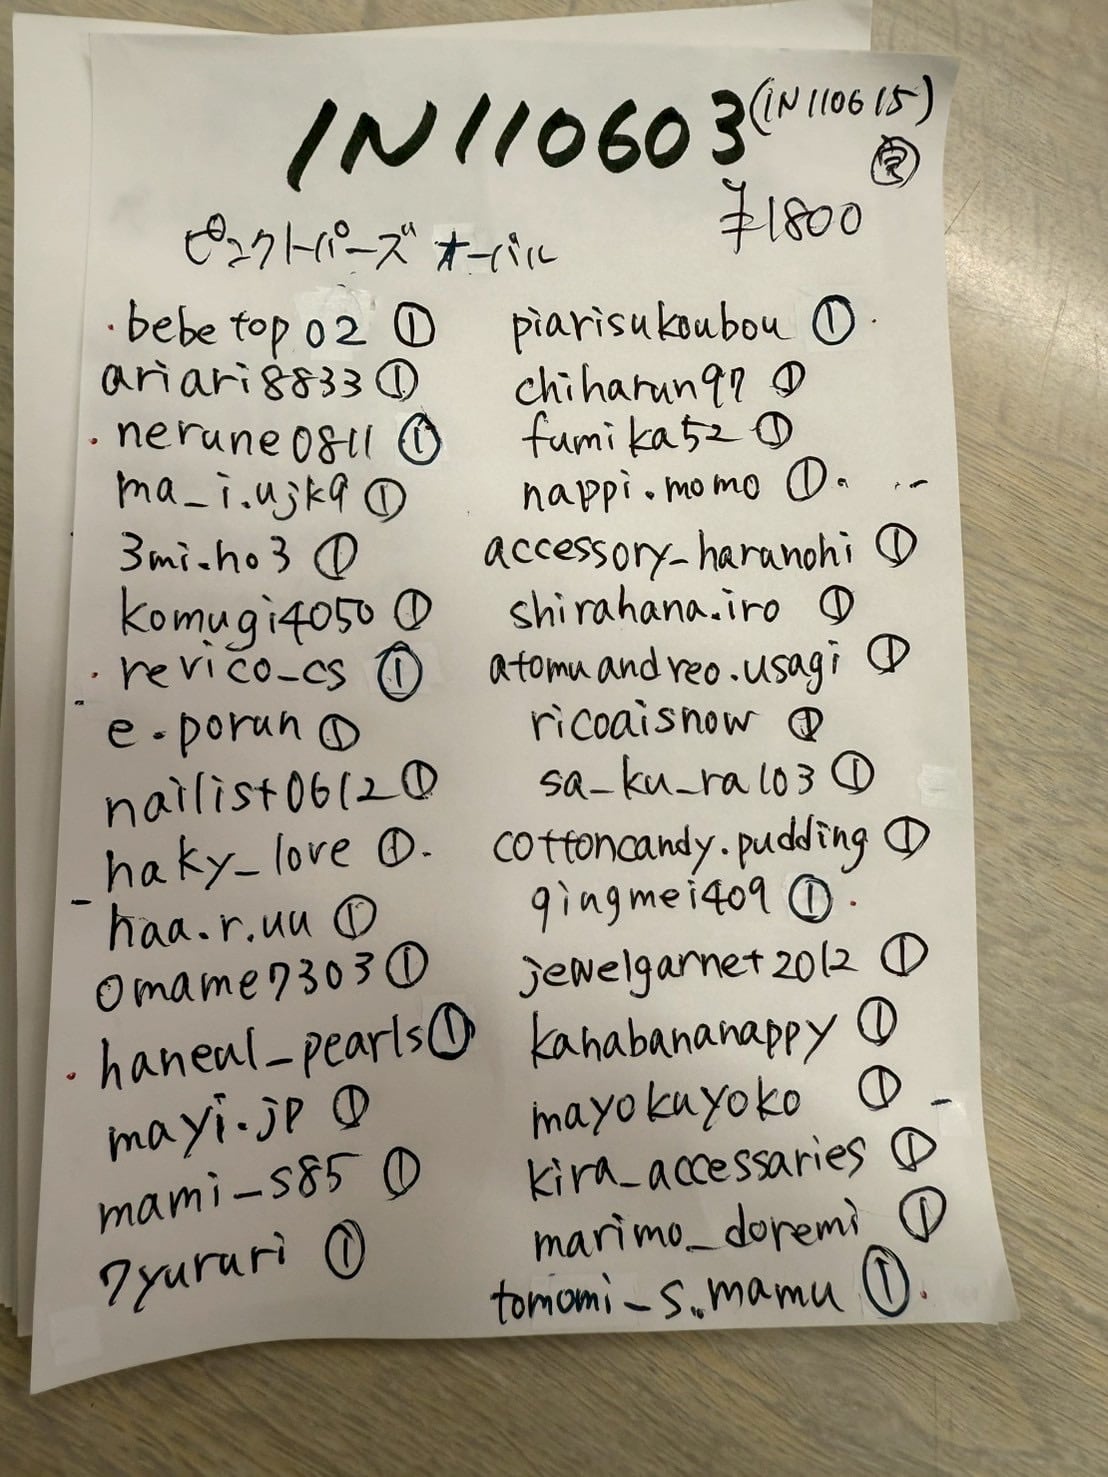 IN110603 (IN110615)
¥1800
ピュクトパーズ オーバル
bebetop02 ①
ariari8833 ①
nerune0811 ①
ma_i.ujk9 ①
3mi.ho3 ①
komugi4050 ①
revico_cs ①
e.porun ①
nailist0612 ①
haky_love ①
haa.r.uu ①
omame7303 ①
haneul_pearls ①
mayi.jp ①
mami_s85 ①
7yururi ①
piarisukoubou ①
chiharun97 ①
fumika52 ①
nappi.momo ①
accessory_haranohi ①
shirahana.iro ①
atomuandreo.usagi ①
ricoaisnow ①
sa_ku_ra103 ①
cottoncandy.pudding ①
qingmei409 ①
jewelgarnet2012 ①
kahabananappy ①
mayokuyoko ①
kira_accessaries ①
marimo_doremi ①
tomomi_s..mamu ①